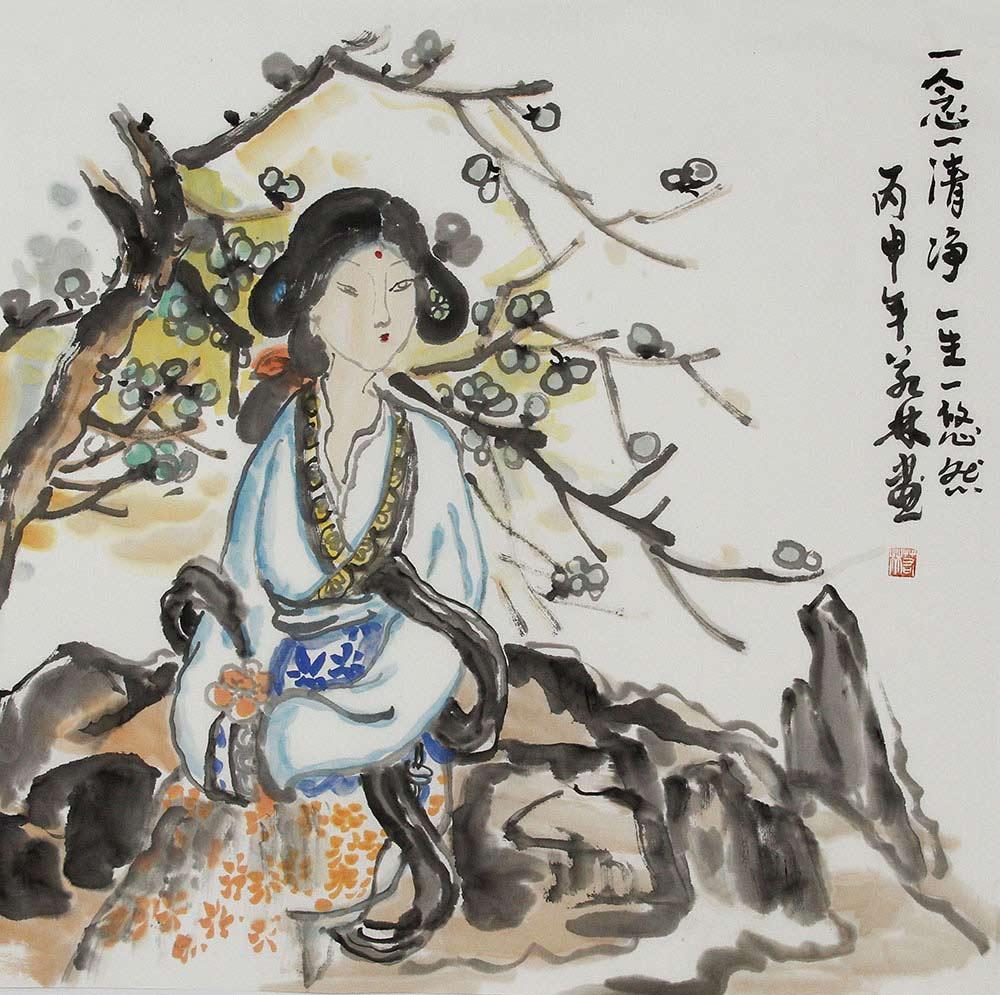 一念一清净 一生一悠然
丙申年若林画